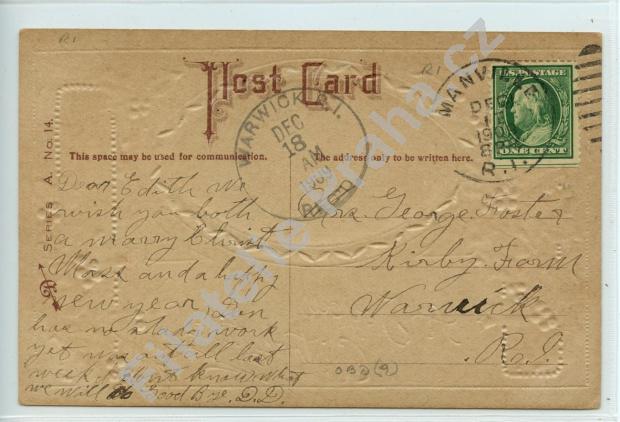 RI
RI
Post Card
WARWICK, R.I.
DEC
18
AM
1909
REC'D
MANVILLE
DEC
190
R.I.
U.S. POSTAGE
ONE CENT
This space may be used for communication.
The address only to be written here.
SERIES A. No. 14.
Dear Edith We
wish you both
a marry Christ
Mass and a happy
new year,
has no steady work
yet was out till last
week I dont know what
we will do Good Bye. D.D.
Mrs. George Foster
Kirby Farm
Warwick
R.I.
filatelie-Praha.cz